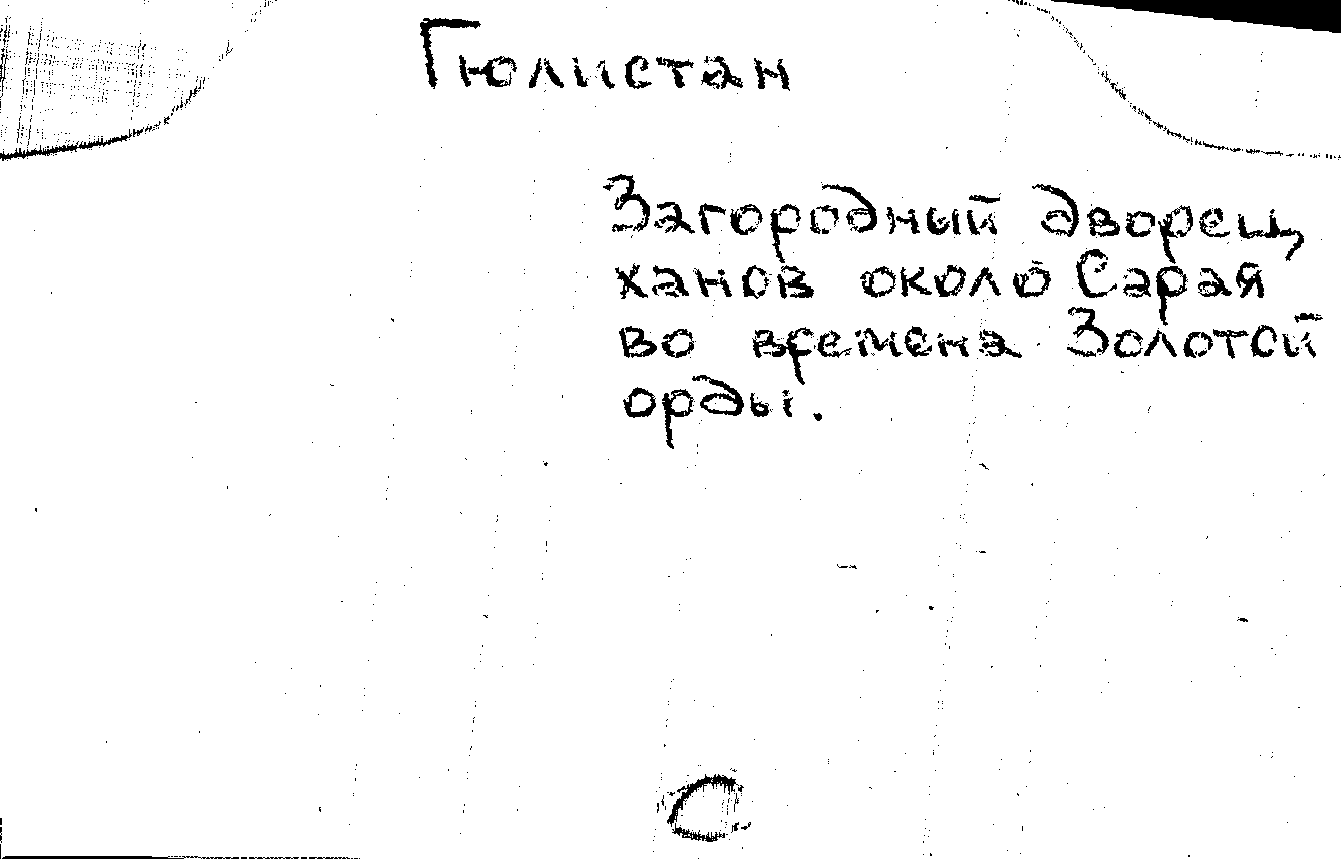 Гюлистан
Загородный дворец
ханов около Сарая
во времена Золотой
орды.